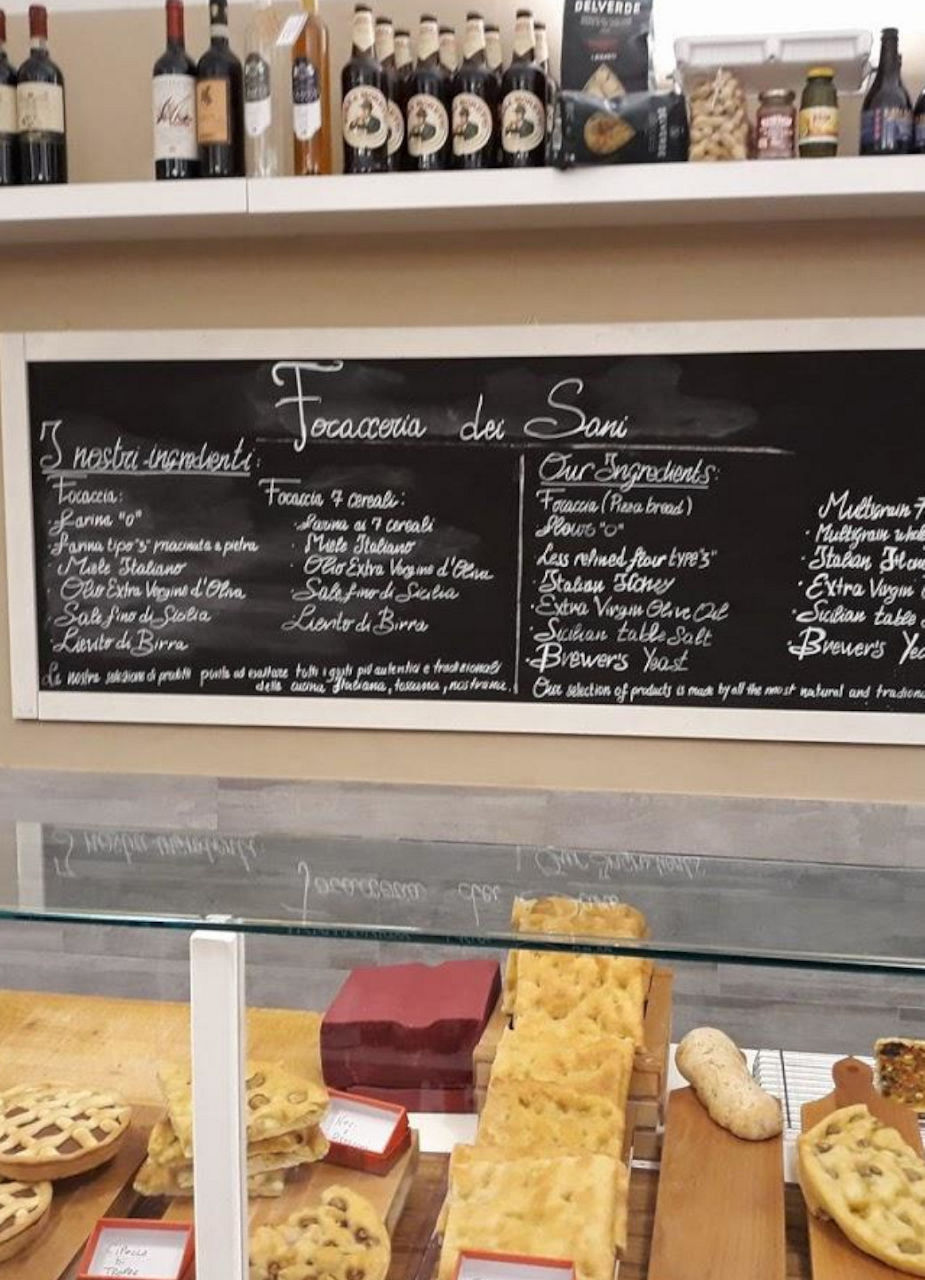 DELVERDE
Focacceria dei Sani
I nostri ingredienti:
Focaccia:
· Farina "0"
· Farina tipo "S" macinata a pietra
· Miele Italiano
· Olio Extra Vergine d'Oliva
· Sale fino di Sicilia
· Lievito di Birra
Focaccia 7 cereali:
· Farina ai 7 cereali
· Miele Italiano
· Olio Extra Vergine d'Oliva
· Sale fino di Sicilia
Lievito di Birra
La nostra selezione di prodotti punta ad esaltare tutti i gusti più autentici e tradizionali
della cucina Italiana, toscana, nostrana.
Our Ingredients:
Focaccia (Pizza bread)
Flour "0"
Less refined flour type "S"
· Italian Honey
· Extra Virgin Olive Oil
· Sicilian table Salt
· Brewer's Yeast
Multigrain 7
· Multigrain
· Italian
· Extra Virgin
· Sicilian table
· Brewer's
Our selection of products is made by all the most natural and
Cipolla
di